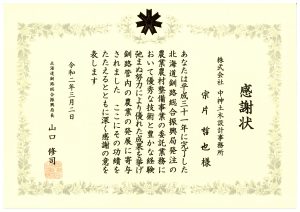 感謝状
株式会社 中神土木設計事務所
宗片 哲也 様
あなたは平成三十一年に完了した
北海道釧路総合振興局発注の
農業農村整備事業の委託業務に
おいて優秀な技術と豊かな経験
弛まぬ努力により優れた成果を挙げ
釧路管内の農業の発展に寄与
されました ここにその功績を
たたえるとともに深く感謝の意を
表します
令和二年三月二日
北海道釧路総合振興局長
山口 修司